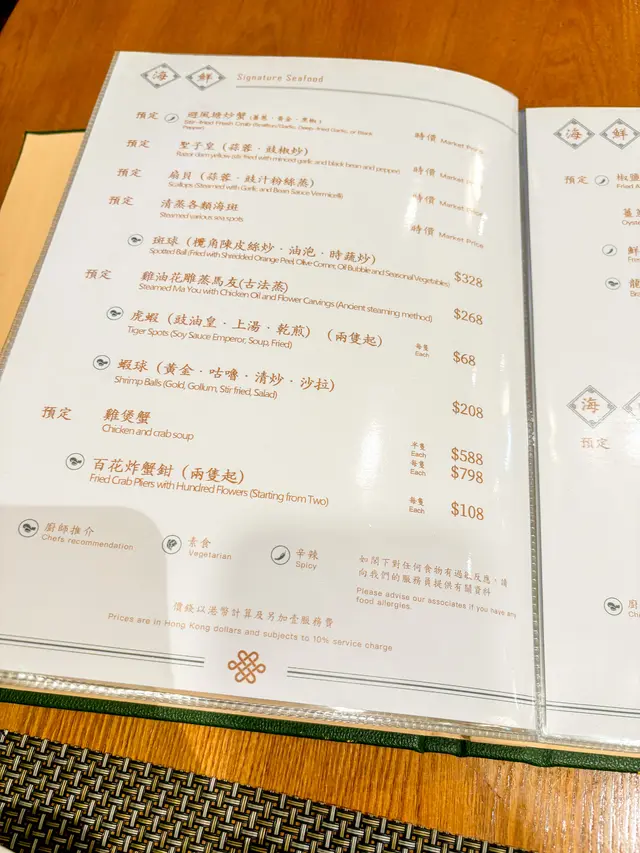 海 鮮 Signature Seafood
預定 避風塘炒蟹 (薑蔥 · 黃金 · 黑椒) 時價 Market Price
Stir-fried Fresh Crab-Scallion/Garlic, Deep-fried Garlic, or Black
Pepper)
預定 聖子皇 (蒜蓉 · 豉椒炒) 時價 Market Price
Razor clam yellow (stir fried with minced garlic and black bean and pepper)
預定 扇貝 (蒜蓉 · 豉汁粉絲蒸) 時價 Market Price
Scallops (Steamed with Garlic and Bean Sauce Vermicelli)
預定 清蒸各類海斑 時價 Market Price
Steamed various sea spots
斑球 (欖角陳皮絲炒 · 油泡 · 時蔬炒) $328
Spotted Ball (Fried with Shredded Orange Peel, Olive Corner, Oil Bubble and Seasonal Vegetables)
預定 雞油花雕蒸馬友(古法蒸) $268
Steamed Ma You with Chicken Oil and Flower Carvings (Ancient steaming method)
虎蝦 (豉油皇 · 上湯 · 乾煎) (兩隻起) 每隻 Each $68
Tiger Spots (Soy Sauce Emperor, Soup, Fried)
蝦球 (黃金 · 咕嚕 · 清炒 · 沙拉) $208
Shrimp Balls (Gold, Gollum, Stir fried, Salad)
預定 雞煲蟹 半隻 Each $588
Chicken and crab soup 每隻 Each $798
百花炸蟹鉗 (兩隻起) 每隻 Each $108
Fried Crab Pliers with Hundred Flowers (Starting from Two)
廚師推介
Chefs recommendation
素食
Vegetarian
辛辣
Spicy
如閣下對任何食物有過敏反應，請
向我們的服務員提供有關資料
Please advise our associates if you have any
food allergies.
價錢以港幣計算及另加壹服務費
Prices are in Hong Kong dollars and subjects to 10% service charge
海 鮮
預定 椒鹽
Fried
薑
Oyste
鮮
Frie
龍
海
預定
廚
Ch